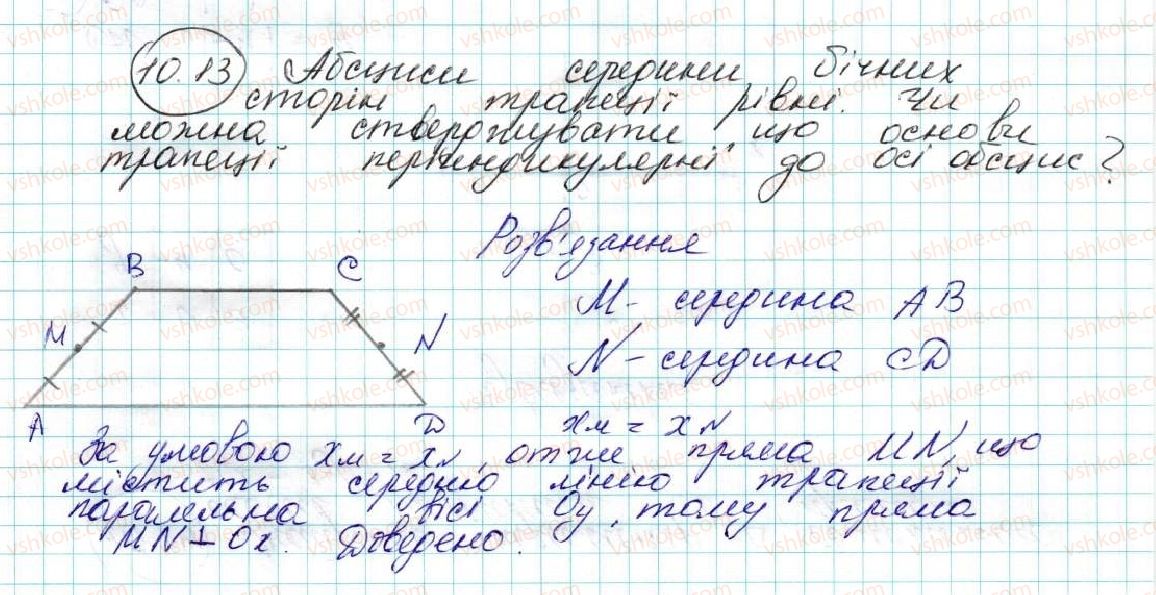 10.13 Абсциси середини бічних
сторін трапеції рівні. Чи
можна стверджувати, що основи
трапеції перпендикулярні до осі абсцис?
Розв'язання
B C
M N
A D
M - середина AB
N - середина CD
xм = xN
За умовою xм = xN, отже пряма MN, що
містить середню лінію трапеції
паралельна вісі Oy, тому пряма
MN ⊥ Ox. Доведено.